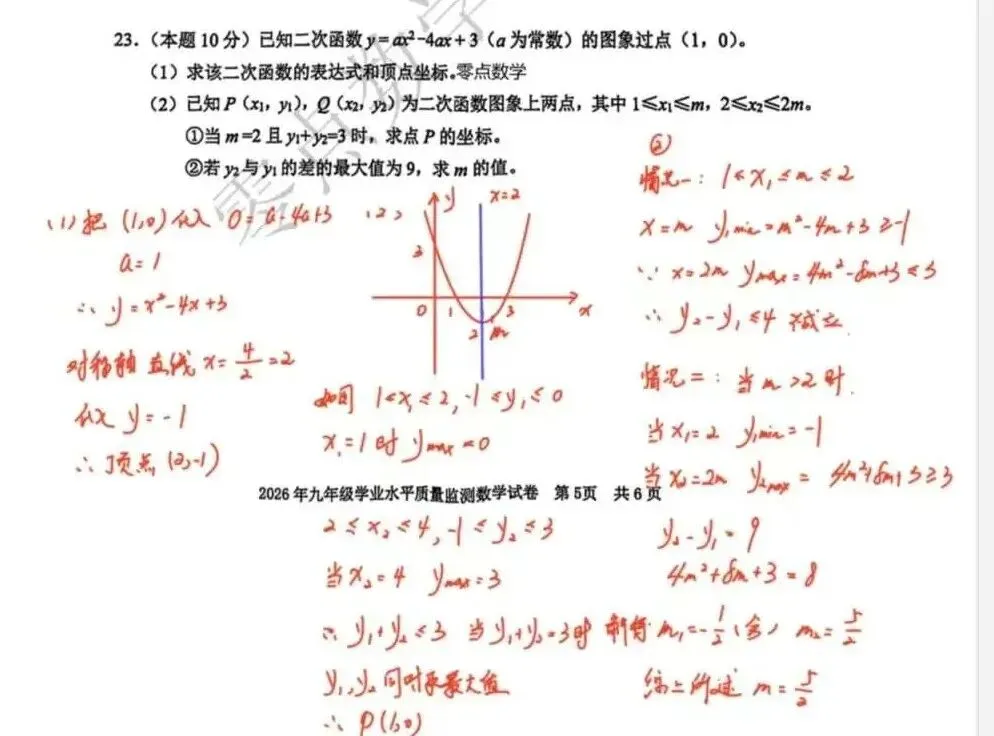 23.（本题 10 分）已知二次函数 y=ax²-4ax+3（a 为常数）的图象过点（1，0）。
（1）求该二次函数的表达式和顶点坐标。零点数学
（2）已知 P（x₁，y₁），Q（x₂，y₂）为二次函数图象上两点，其中 1≤x₁≤m，2≤x₂≤2m。
①当 m=2 且 y₁+y₂=3 时，求点 P 的坐标。
②若 y₂ 与 y₁ 的差的最大值为 9，求 m 的值。
(1) 把 (1,0) 代入 0=a-4a+3
a=1
∴ y=x²-4x+3
对称轴 直线 x=4/2=2
代入 y=-1
∴ 顶点 (2,-1)
(2)
y
x=2
3
0 1 2 m 3 x
如图 1≤x₁≤2, -1≤y₁≤0
x₁=1时 ymax=0
2026 年九年级学业水平质量监测数学试卷 第5页 共 6 页
2≤x₂≤4, -1≤y₂≤3
当 x₂=4 ymax=3
∴ y₁+y₂≤3 当 y₁+y₂=3时
y₁,y₂ 同时取最大值
∴ P(1,0)
②
情况一: 1≤x₁≤m≤2
x=m y₁min=m²-4m+3≥-1
∵ x=2m ymax=4m²-8m+3≤3
∴ y₂-y₁≤4 不成立
情况二: 当 m>2 时
当 x₁=2 y₁min=-1
当 x₂=2m y₂max=4m²-8m+3≥3
y₂-y₁=9
4m²-8m+3=8
解得 m₁=-1/2 (舍) m₂=5/2
综上所述 m=5/2
零点数学